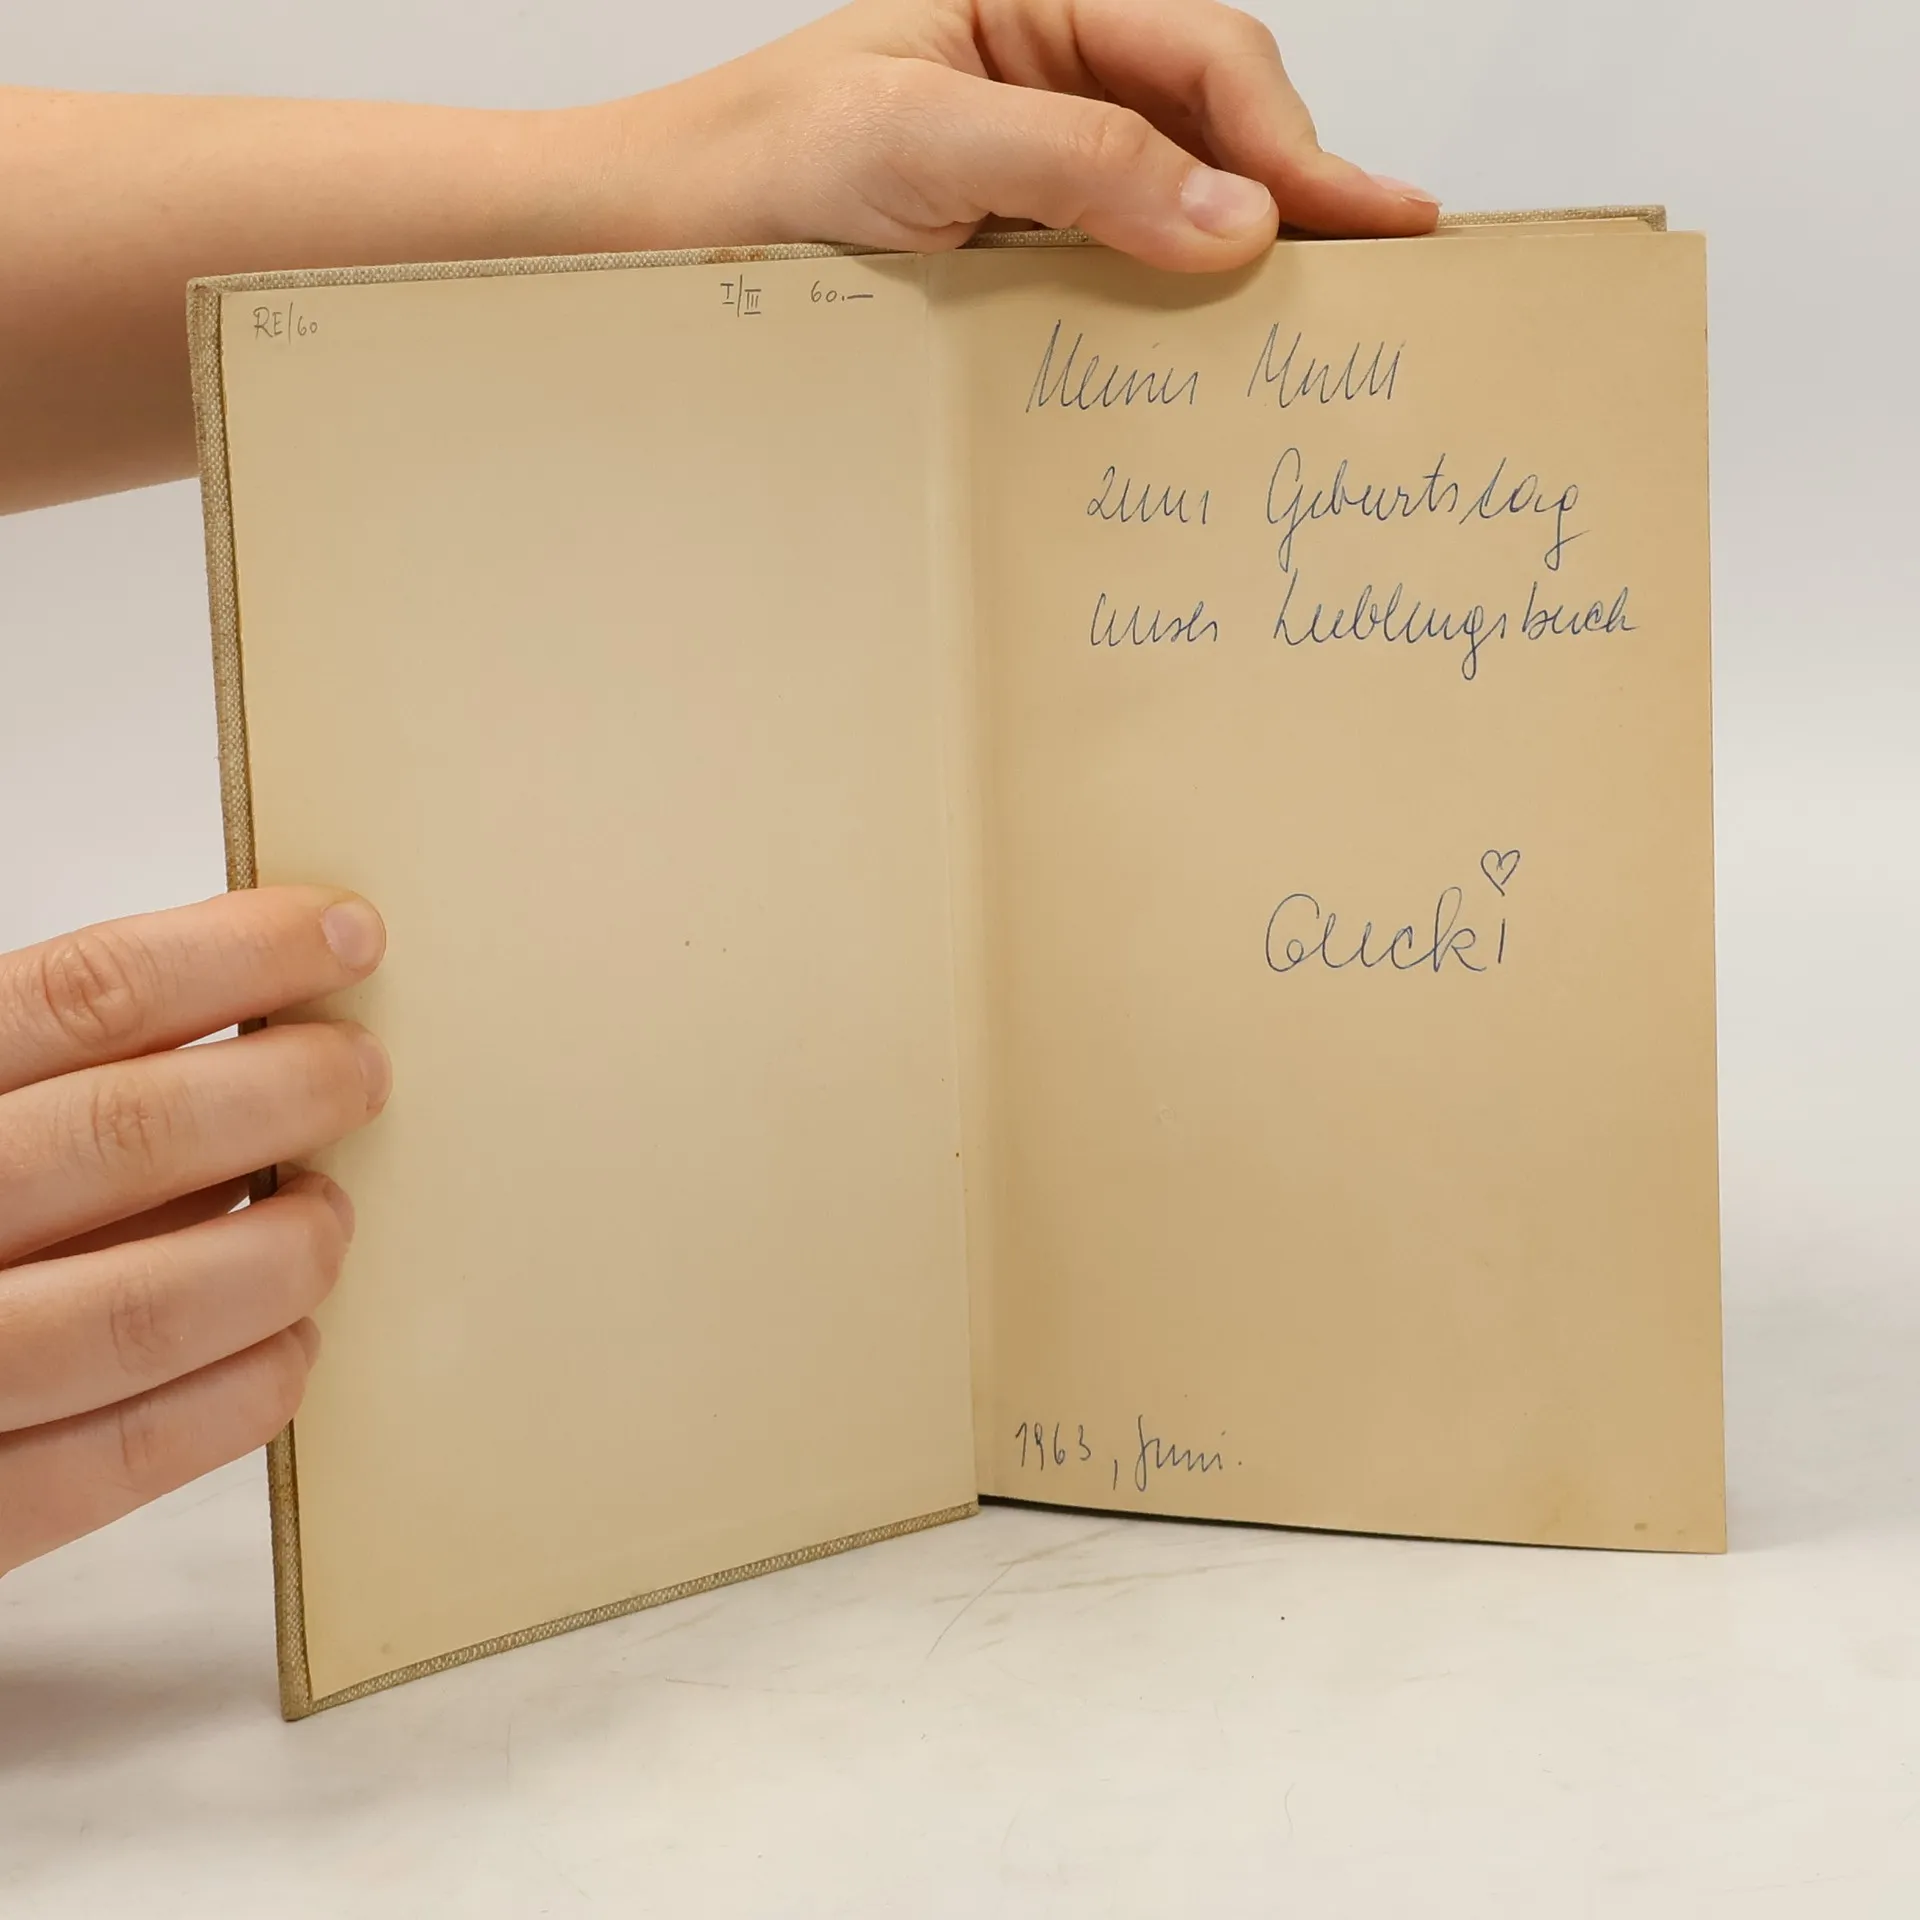 RE/60
I/III 60.—
Meiner
zum Geburtstag
unser Lieblingsbuch
Gucki
1963, Juni.